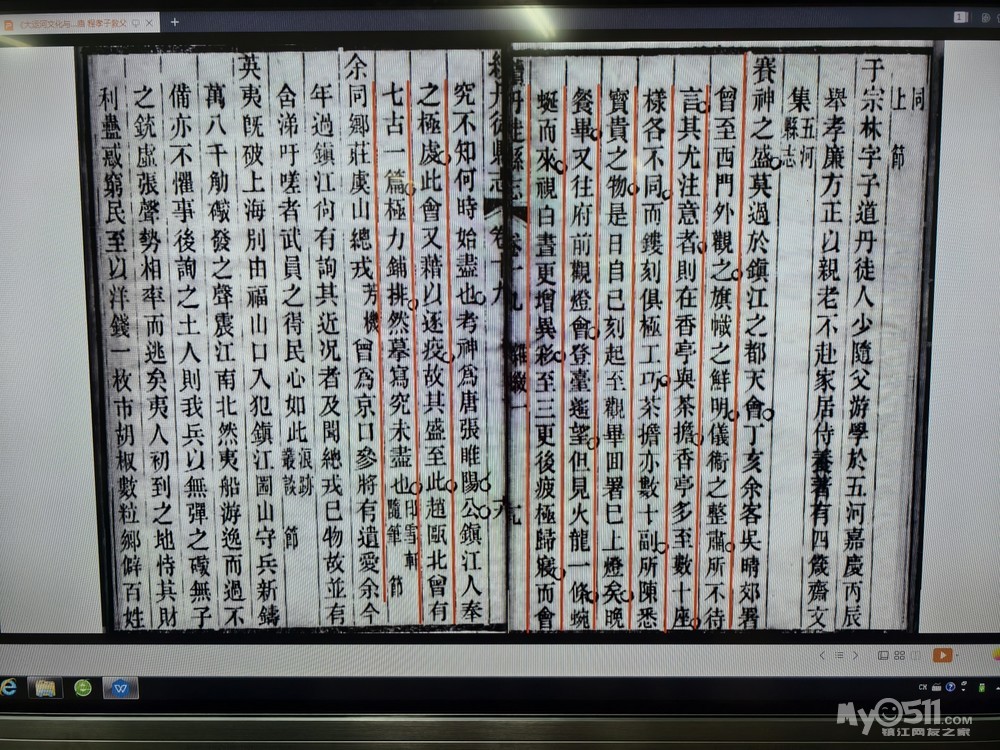 《大运河文化与...扇 程孝子救父
同上 節
于宗林字子道丹徒人少隨父游學於五河嘉慶丙辰
舉孝廉方正以親老不赴家居侍養著有四箴齋文
集 五河縣志
賽神之盛莫過於鎮江之都天會丁亥余客吳晴郊署
曾至西門外觀之旗幟之鮮明儀衛之整肅所不待
言其尤注意者則在香亭與茶擔香亭多至數十座
樣各不同而鏤刻俱極工巧茶擔亦數十副所陳悉
寳貴之物是日自巳刻起至觀畢回署已上燈矣晚
餐畢又往府前觀燈會登臺遙望但見火龍一條蜿
蜒而來視白晝更增異彩至三更後疲極歸寢而會
續丹徒縣志 卷十九 雜綴一
究不知何時始盡也考神爲唐張睢陽公鎮江人奉
之極虔此會又藉以逐疫故其盛至此趙甌北曾有
七古一篇極力鋪排然摹寫究未盡也 印雪軒隨筆 節
余同鄉莊虞山總戎芳機曾爲京口參將有遺愛余今
年過鎮江尙有詢其近况者及聞總戎已物故並有
含涕吁嗟者武員之得民心如此 浪跡叢談 節
英夷旣破上海別由福山口入犯鎮江圌山守兵新鑄
萬八千觔礮發之聲震江南北然夷船游逸而過不
備亦不懼事後詢之土人則我兵以無彈之礮無子
之銃虛張聲勢相率而逃矣夷人初到之地恃其財
利蠱惑窮民至以洋錢一枚市胡椒數粒鄉僻百姓
CN
My0511.COM
镇江网友之家